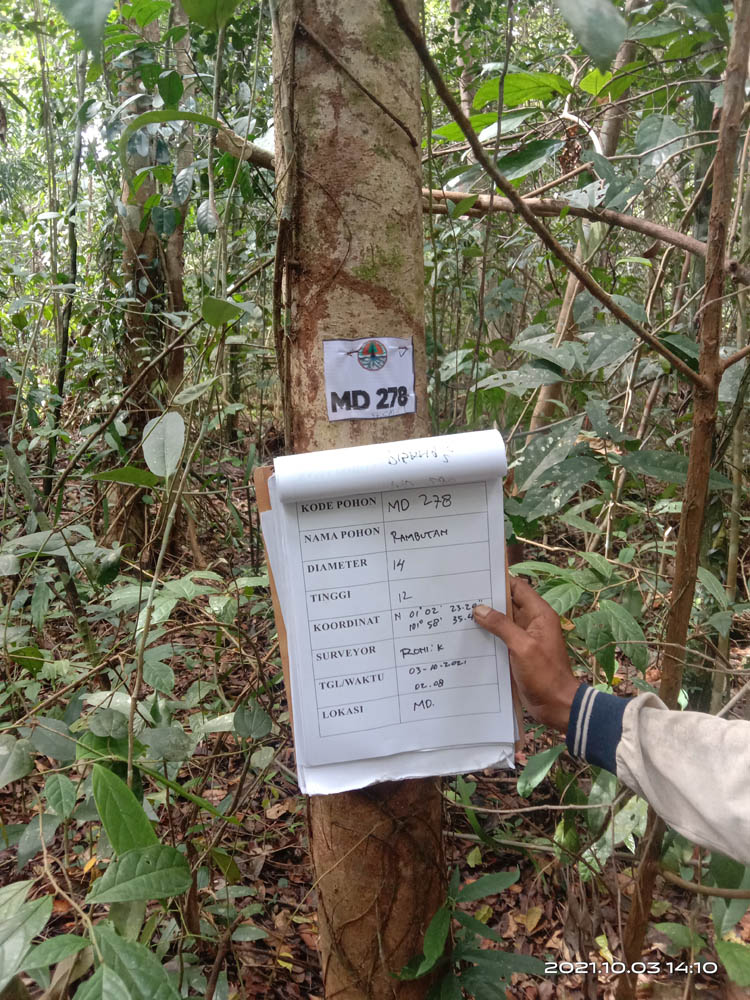 MD 278
KODE POHON MD 278
NAMA POHON RAMBUTAN
DIAMETER 14
TINGGI 12
KOORDINAT N 01° 02' 23.20"
101° 58' 35.4
SURVEYOR ROMI K
TGL/WAKTU 03-10-2021
02.08
LOKASI MD.
2021.10.03 14:10